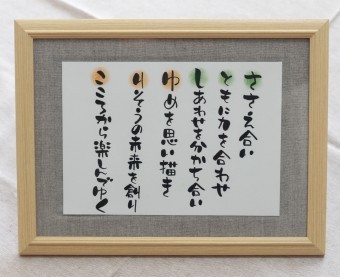 ささえ合い
ともに力を合わせ
しあわせを分かち合い
ゆめを思い描き
りそうの未来を創り
こころから楽しんでゆく